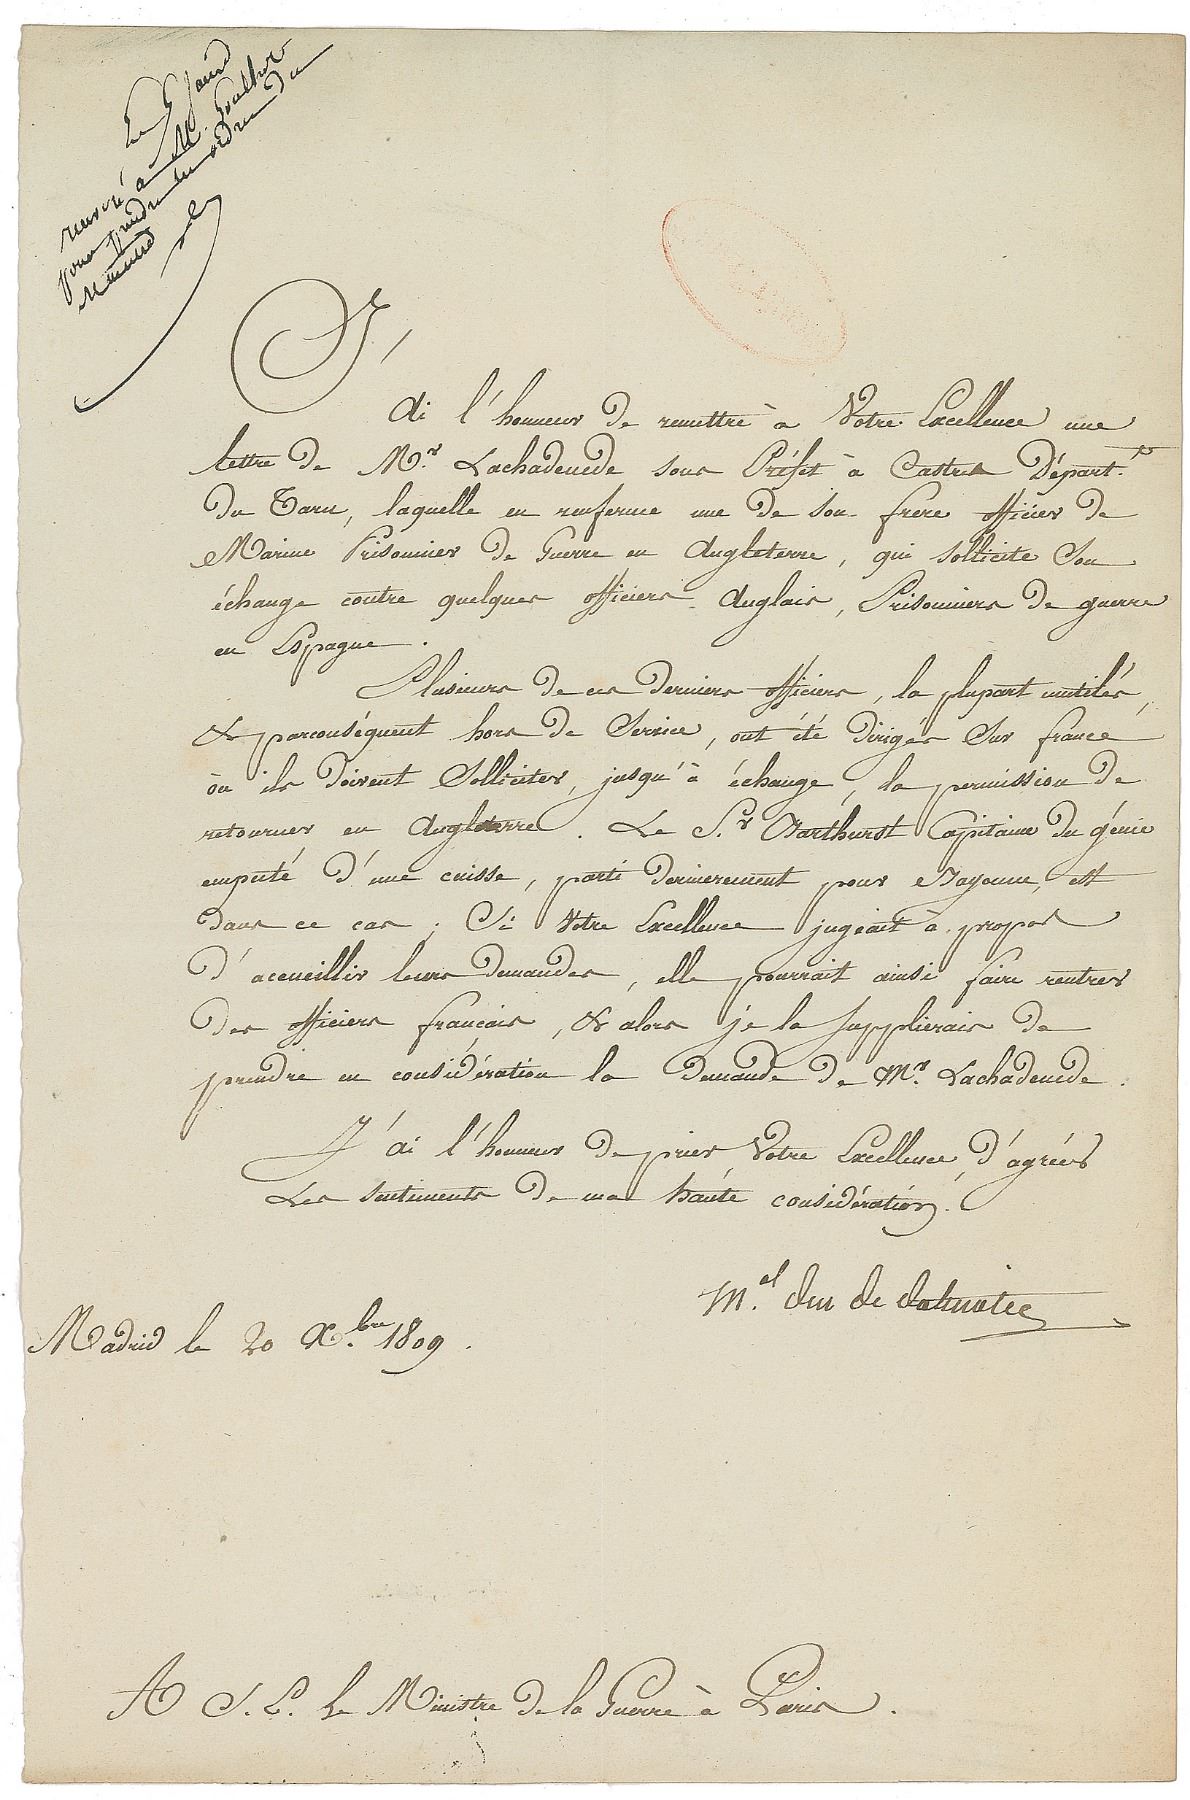 Le 5 Janv
renvoyé à M.
pour prendre les ordres du
Ministre
J'
ai l'honneur de remettre à Votre Excellence une
lettre de M.r Lachadenede sous Préfet à Castres Départ.t
du Tarn, laquelle en renferme une de son frere officier de
Marine Prisonnier de Guerre en Angleterre, qui sollicite son
échange contre quelques officiers Anglais, Prisonniers de guerre
en Espagne.
Plusieurs de ces derniers officiers, la plupart mutilés,
& parconséquent hors de Service, ont été dirigés sur france
où ils doivent solliciter, jusqu'à échange, la permission de
retourner en Angleterre. Le S.r Barthurst Capitaine du génie
amputé d'une cuisse, parti dernierement pour Bayonne, est
dans ce cas; Si Votre Excellence jugeait à propos
d'accueillir leurs demandes, elle pourrait ainsi faire rentrer
des officiers français, & alors je la supplierais de
prendre en considération la demande de M.r Lachadenede.
J'ai l'honneur de prier Votre Excellence, d'agréer
Les sentiments de ma haute considération.
M.al duc de dalmatie
Madrid le 20 X.bre 1809.
A S. E. le Ministre de la Guerre à Paris.